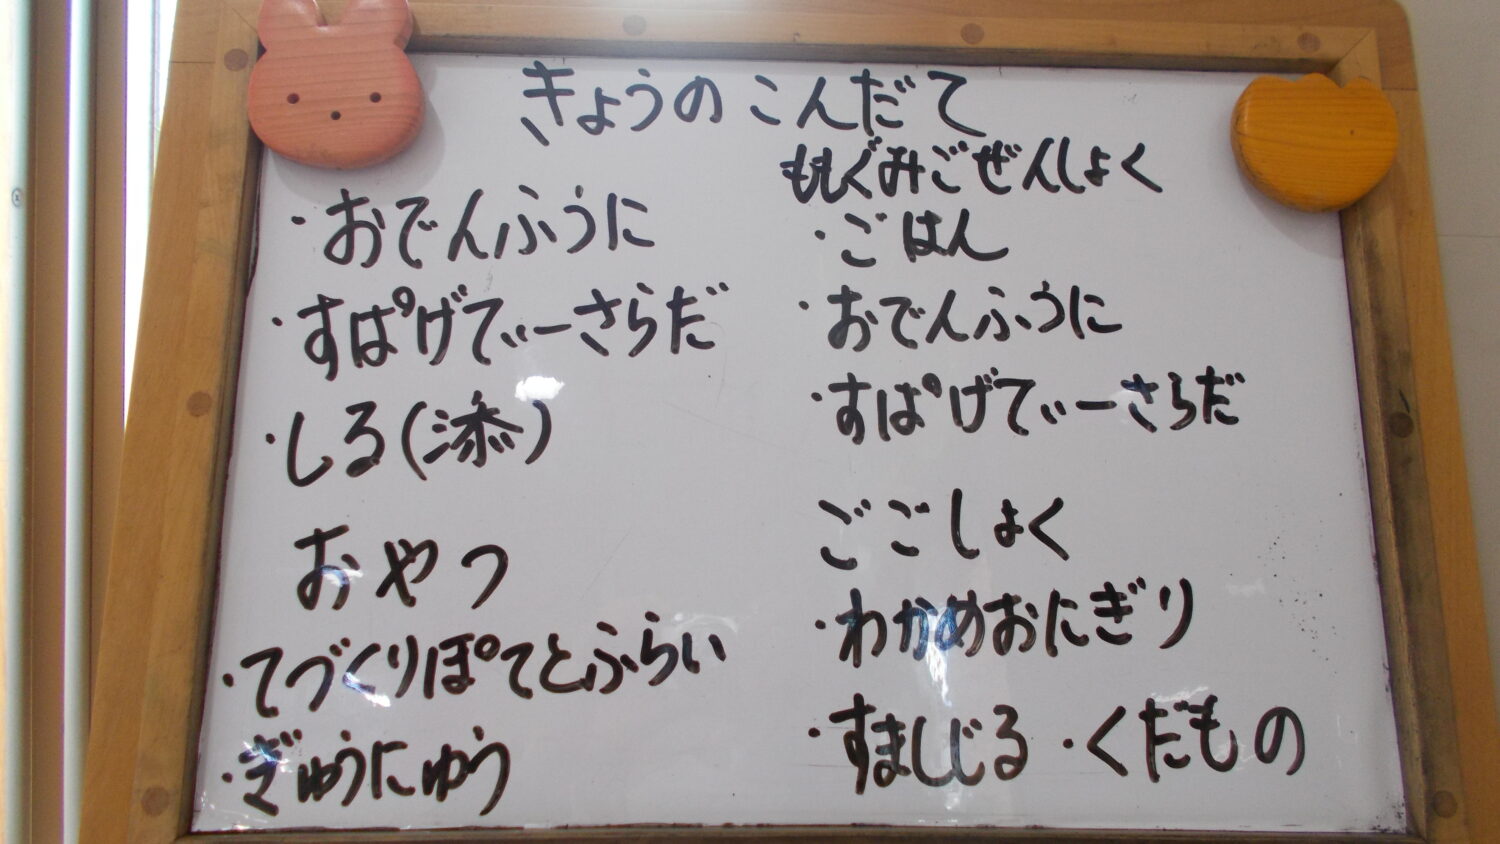 きょうのこんだて
・おでんふうに
・すぱげてぃーさらだ
・しる(添)
おやつ
・てづくりぽてとふらい
・ぎゅうにゅう
ももぐみごぜんしょく
・ごはん
・おでんふうに
・すぱげてぃーさらだ
ごごしょく
・わかめおにぎり
・すましじる・くだもの